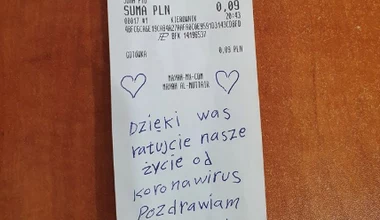 SUMA PLN 0,09
00017 #1 KIEROWNIK 20:43
BFK 14198537
GOTÓWKA 0,09 PLN
Dzięki was
ratujcie nasze
życie od
koronawirus
Pozdrawiam